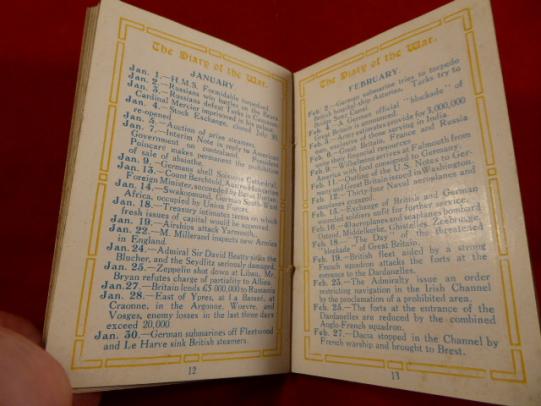 The Diary of the War.
JANUARY
Jan. 1.—H.M.S. Formidable torpedoed.
Jan. 2.—Russians win battle
Jan. 3.—Russians defeat Turks
Cardinal Mercier imprisoned in his palace.
Jan. 4.—Stock Exchange, closed July 30,
re-opened.
Jan. 5.—Auction of prize steamers.
Jan. 7.—Interim Note in reply to American
Government on contraband. President
Poincare makes permanent the prohibition
of sale of absinthe.
Jan. 9.—Germans shell Soissons Cathedral.
Jan. 13.—Count Berchtold, Austro-Hungarian
Foreign Minister, succeeded by Baron Burian.
Jan. 14.—Swakopmund, German South-West
Africa, occupied by Union Forces.
Jan. 18.—Treasury intimates terms on which
fresh issues of capital would be allowed.
Jan. 19.—Airships attack Yarmouth.
Jan. 22.—M. Millerand inspects new Armies
in England.
Jan. 24.—Admiral Sir David Beatty sinks the
Blucher, and the Seydlitz seriously damaged.
Jan. 25.—Zeppelin shot down at Libau, Mr.
Bryan refutes charge of partiality to Allies.
Jan. 27.—Britain lends £5 000,000 to Rumania
Jan. 28.—East of Ypres, at La Bassé, at
Craonne, in the Argonne, Woevre, and
Vosges, enemy losses in the last three days
exceed 20,000
Jan. 30.—German submarines off Fleetwood
and Le Harve sink British steamers.
12
The Diary of the War.
FEBRUARY.
Feb. 2.—German submarine tries to torpedo
British hospital ship Asturias. Turks try to
cross Suez Canal.
Feb. 4.—A German official "blockade" of
Great Britain is announced.
Feb. 5.—Army estimates provide for 3,000,000
exclusive of those serving in India.
Feb. 6.—Great Britain, France and Russia
pool their financial resources.
Feb. 9.—Wilhelmina arrives at Falmouth from
America with food consigned to Germany.
Feb. 11.—Outline of the U.S. Notes to Ger-
many and Great Britain issued in Washington.
Feb. 12.—Thirty-four Naval aeroplanes and
seaplanes
Feb. 15.—Exchange of British and German
wounded soldiers unfit for further service.
Feb. 16.—aeroplanes and seaplanes bombard
Ostend, Middelkerke, Ghistelles, Zeebrugge.
Feb. 18.—"The Day" of the threatened
"blockade" of Great Britain.
Feb. 19.—British fleet aided by a strong
French squadron attacks the forts at the
entrance to the Dardanelles.
Feb. 23.—The Admiralty issue an order
restricting navigation in the Irish Channel
by the proclamation of a prohibited area.
Feb. 25.—The forts at the entrance of the
Dardanelles are reduced by the combined
Anglo-French squadron.
Feb. 27.—Dacia stopped in the Channel by
French warship and brought to Brest.
13